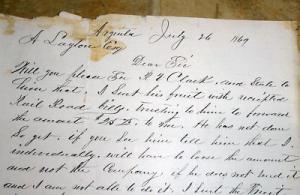 Augusta July 26 1869
A Layton Esq
Dear Sir
Will you please See R Y Clark and State to
him that I Sent his fruit with receipted
Rail Road bills, trusting to him to forward
the amount $28 to me. He has not done
So yet, if you See him tell him that I
individually, will have to loose the amount
and not the Company if he does not send it
and I am not able to do it. I sent the